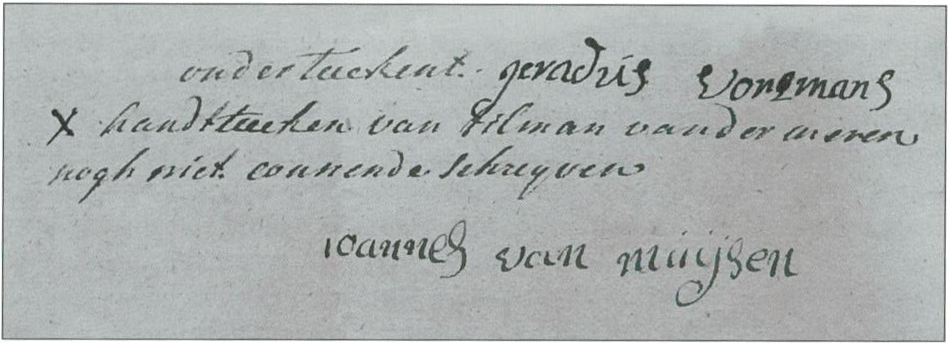 onderteekent. geradus vorsmans
X handtteeken van tilman vander meren
nogh niet connende schreyven
ioannes van muijsen